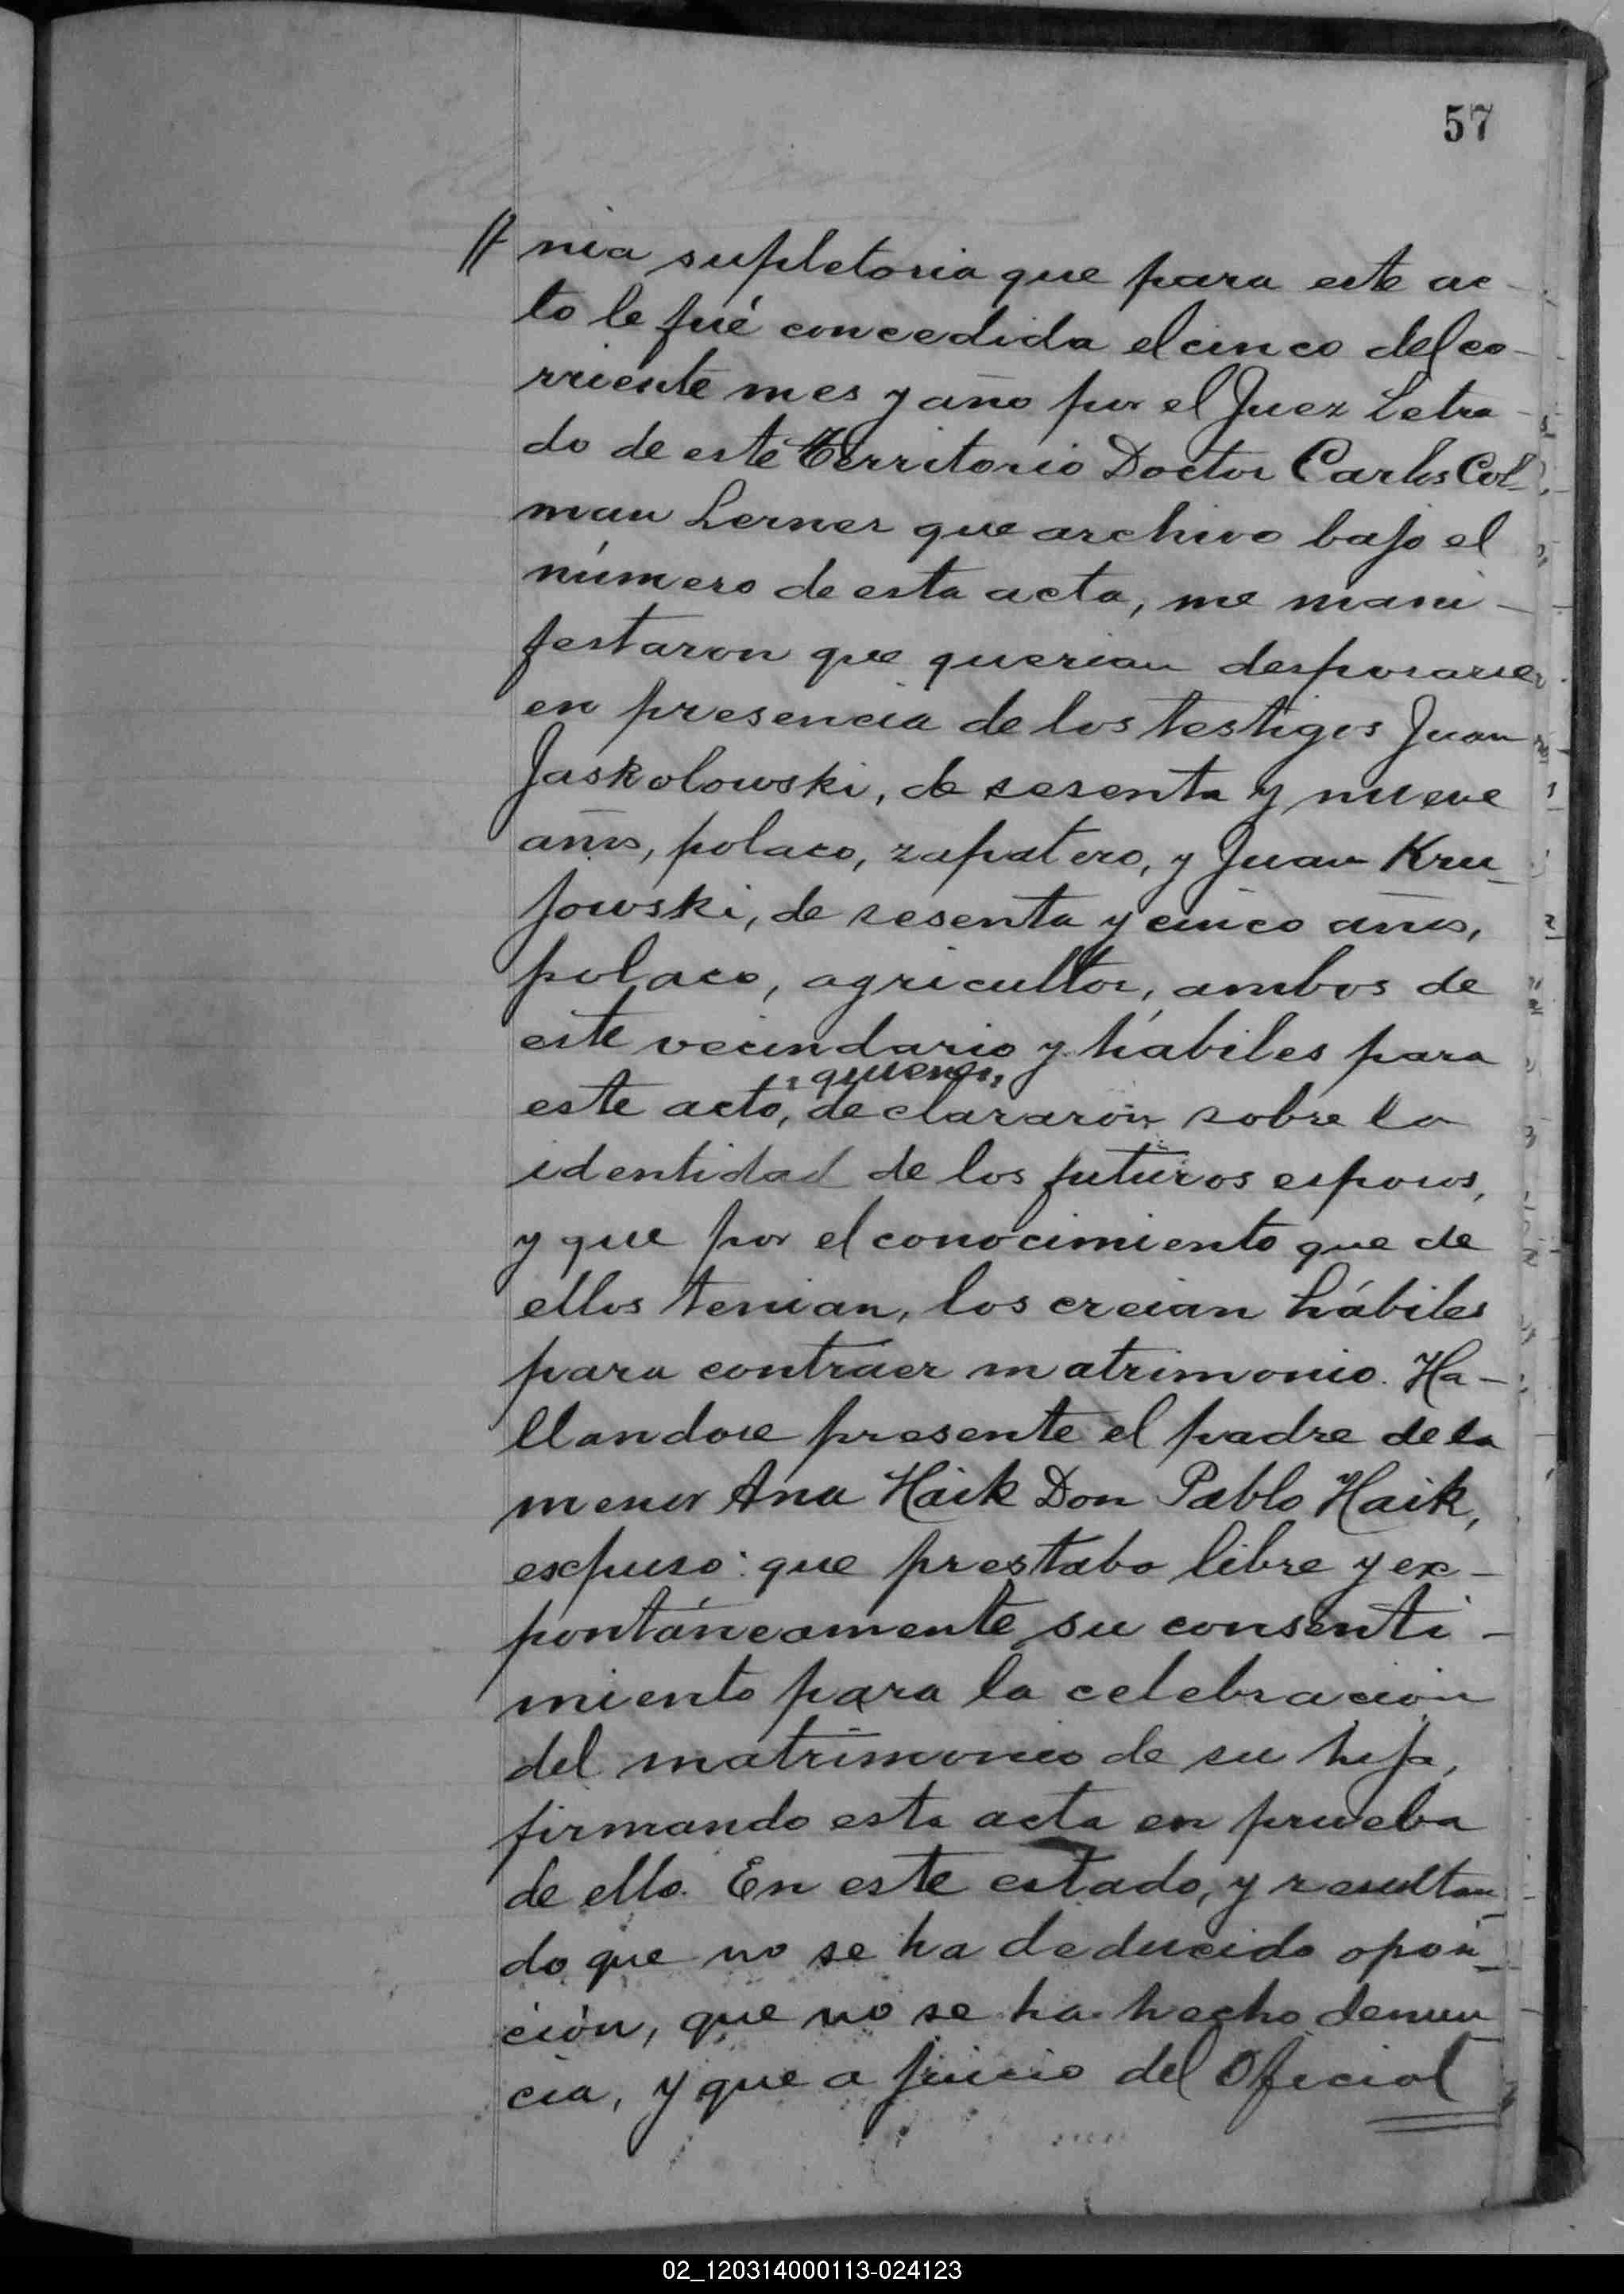 57
// nia supletoria que para este ac-
to le fué concedida el cinco del co-
rriente mes y año por el Juez Letra-
do de este Territorio Doctor Carlos Col-
man Lerner que archivo bajo el
número de esta acta, me mani-
festaron que querian desposarse,
en presencia de los testigos Juan
Jaskolowski, de sesenta y nueve
años, polaco, zapatero, y Juan Kru-
jowski, de sesenta y cinco años,
polaco, agricultor, ambos de
este vecindario y hábiles para
quienes,
este acto, declararón sobre la
identidad de los futuros esposos,
y que por el conocimiento que de
ellos tenian, los creian hábiles
para contraer matrimonio. Ha-
llandose presente el padre de la
menor Ana Haik Don Pablo Haik,
expuso: que prestaba libre y ex-
pontáneamente su consenti-
miento para la celebración
del matrimonio de su hija,
firmando esta acta en prueba
de ello. En este estado, y resultan-
do que no se ha deducido oposi-
ción, que no se ha hecho denun-
cia, y que a juicio del Oficial
02_120314000113-024123